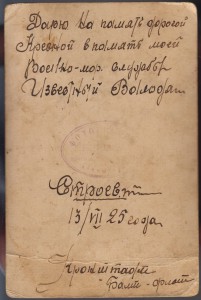 Дарю на память дорогой
в память моей
Военно-мор. службы
Известный Володя
13/VII 25 года
Кронштадт
Балт-флот